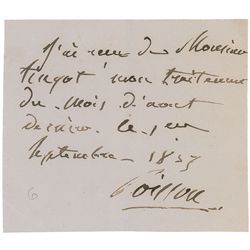 J'ai reçu de Monsieur
tingot mon traitement
du mois d'aout
dernier. le 1er
Septembre 1837
Poisson
6